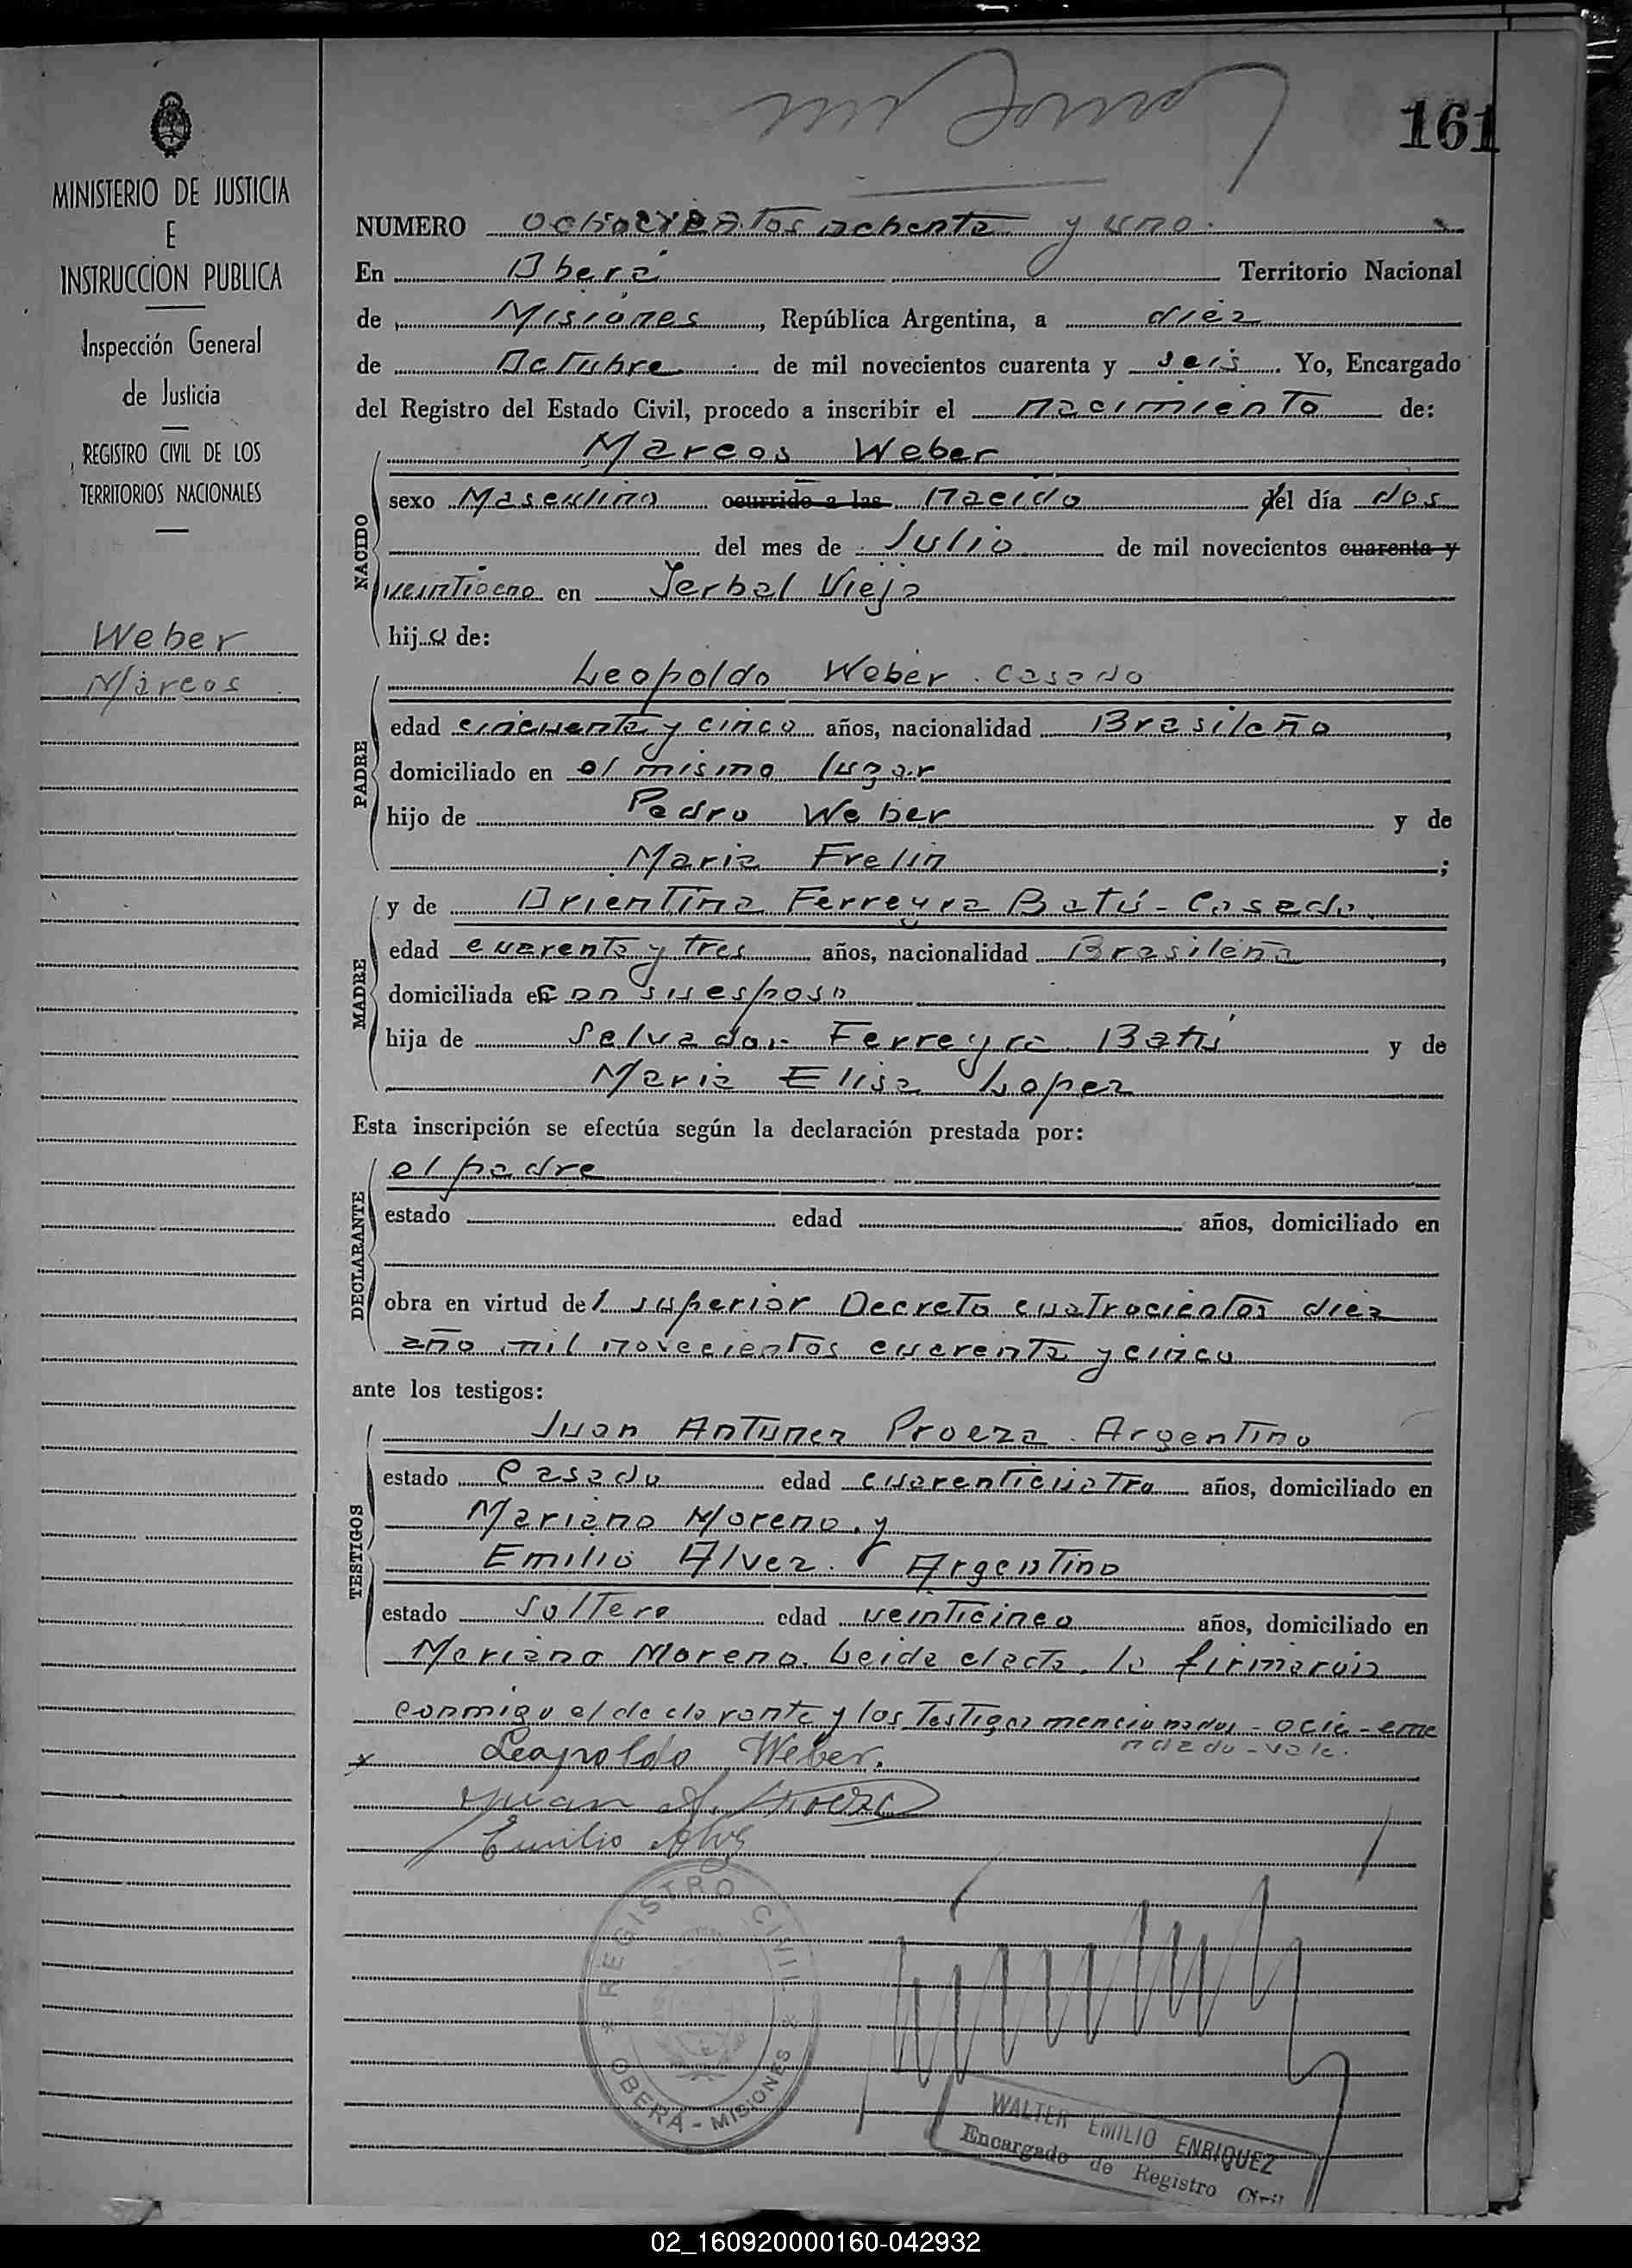 161
MINISTERIO DE JUSTICIA
E
INSTRUCCION PUBLICA
Inspección General
de Justicia
REGISTRO CIVIL DE LOS
TERRITORIOS NACIONALES
Weber
Marcos
NUMERO ochocientos ochenta y uno.
En Oberá Territorio Nacional
de Misiones, República Argentina, a diez
de Octubre de mil novecientos cuarenta y seis. Yo, Encargado
del Registro del Estado Civil, procedo a inscribir el nacimiento de:
NACIDO
Marcos Weber
sexo Masculino ocurrido a las Nacido del día dos
del mes de Julio de mil novecientos cuarenta y
veintiocho en Yerbal Viejo
hijo de:
PADRE
Leopoldo Weber. casado
edad cincuenta y cinco años, nacionalidad Brasileño,
domiciliado en el mismo lugar
hijo de Pedro Weber y de
Maria Frelin ;
MADRE
y de Orientina Ferreyra Batú - Casada.
edad cuarenta y tres años, nacionalidad Brasileña,
domiciliada en con su esposo
hija de Salvador Ferreyra Batú y de
Maria Elisa Lopez
Esta inscripción se efectúa según la declaración prestada por:
DECLARANTE
el padre
estado edad años, domiciliado en
obra en virtud del superior Decreto cuatrocientos diez
año mil novecientos cuarenta y cinco
ante los testigos:
TESTIGOS
Juan Antunez Proeza. Argentino
estado Casado edad cuarenticuatro años, domiciliado en
Mariano Moreno. y
Emilio Alvez. Argentino
estado Soltero edad veinticinco años, domiciliado en
Mariano Moreno. Leida el acta. la firmaron
conmigo el declarante y los Testigos mencionados - ocie - enme
ndado - vale.
x Leopoldo Weber.
Juan A. Proeza
Emilio Alvez
REGISTRO CIVIL
OBERÁ - MISIONES
WALTER EMILIO ENRIQUEZ
Encargado de Registro Civil
02_160920000160-042932